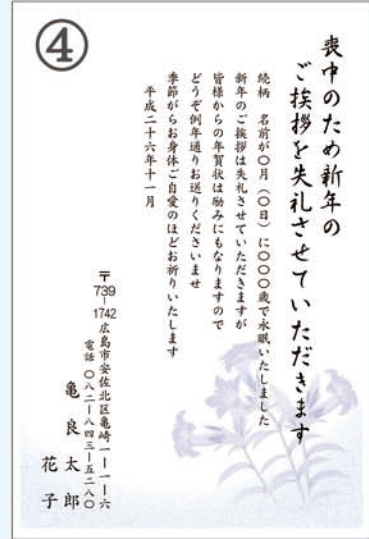 ④
喪中のため新年の
ご挨拶を失礼させていただきます
続柄 名前が〇月(〇日)に〇〇〇歳で永眠いたしました
新年のご挨拶は失礼させていただきますが
皆様からの年賀状は励みにもなりますので
どうぞ例年通りお送りくださいませ
季節がらお身体ご自愛のほどお祈りいたします
平成二十六年十一月
〒739-1742 広島市安佐北区亀崎一ー一ー六
電話 〇八二ー八四三ー五二八〇
亀良太郎
花子